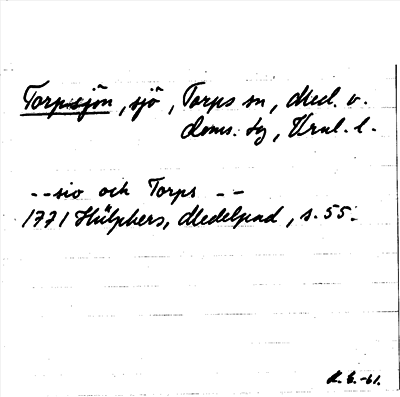 Torpsjön, sjö, Torps sn, Med. v.
doms. sg, Vrnl. l.
-- sio och Torps --
1771 Hülphers, Medelpad, s. 55.
R. E. -61.